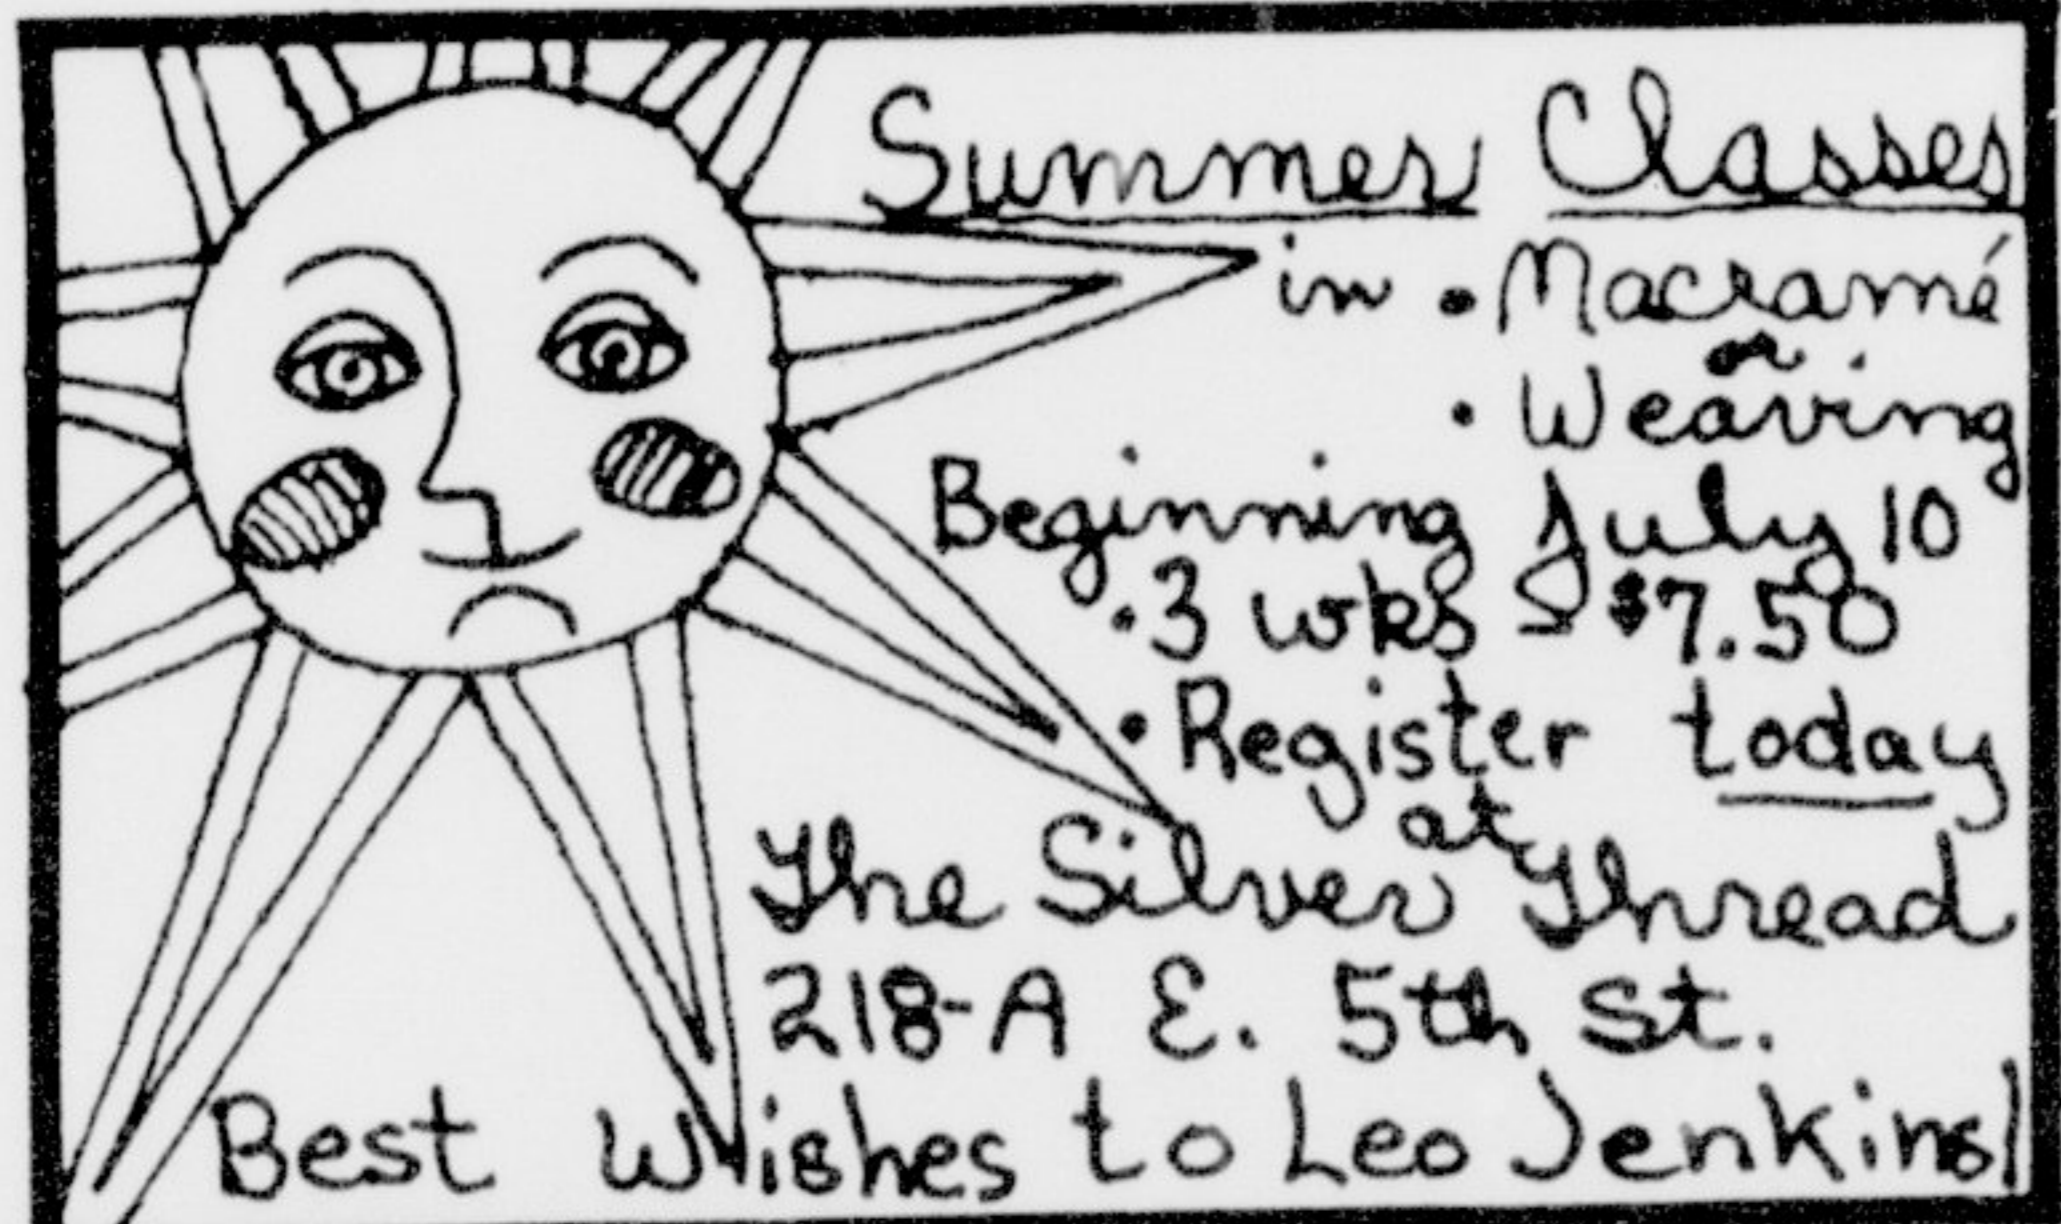 Summer Classes
in • Macramé
or
• Weaving
Beginning July 10
• 3 wks – $7.50
• Register today
at
The Silver Thread
218-A E. 5th St.
Best Wishes to Leo Jenkins!